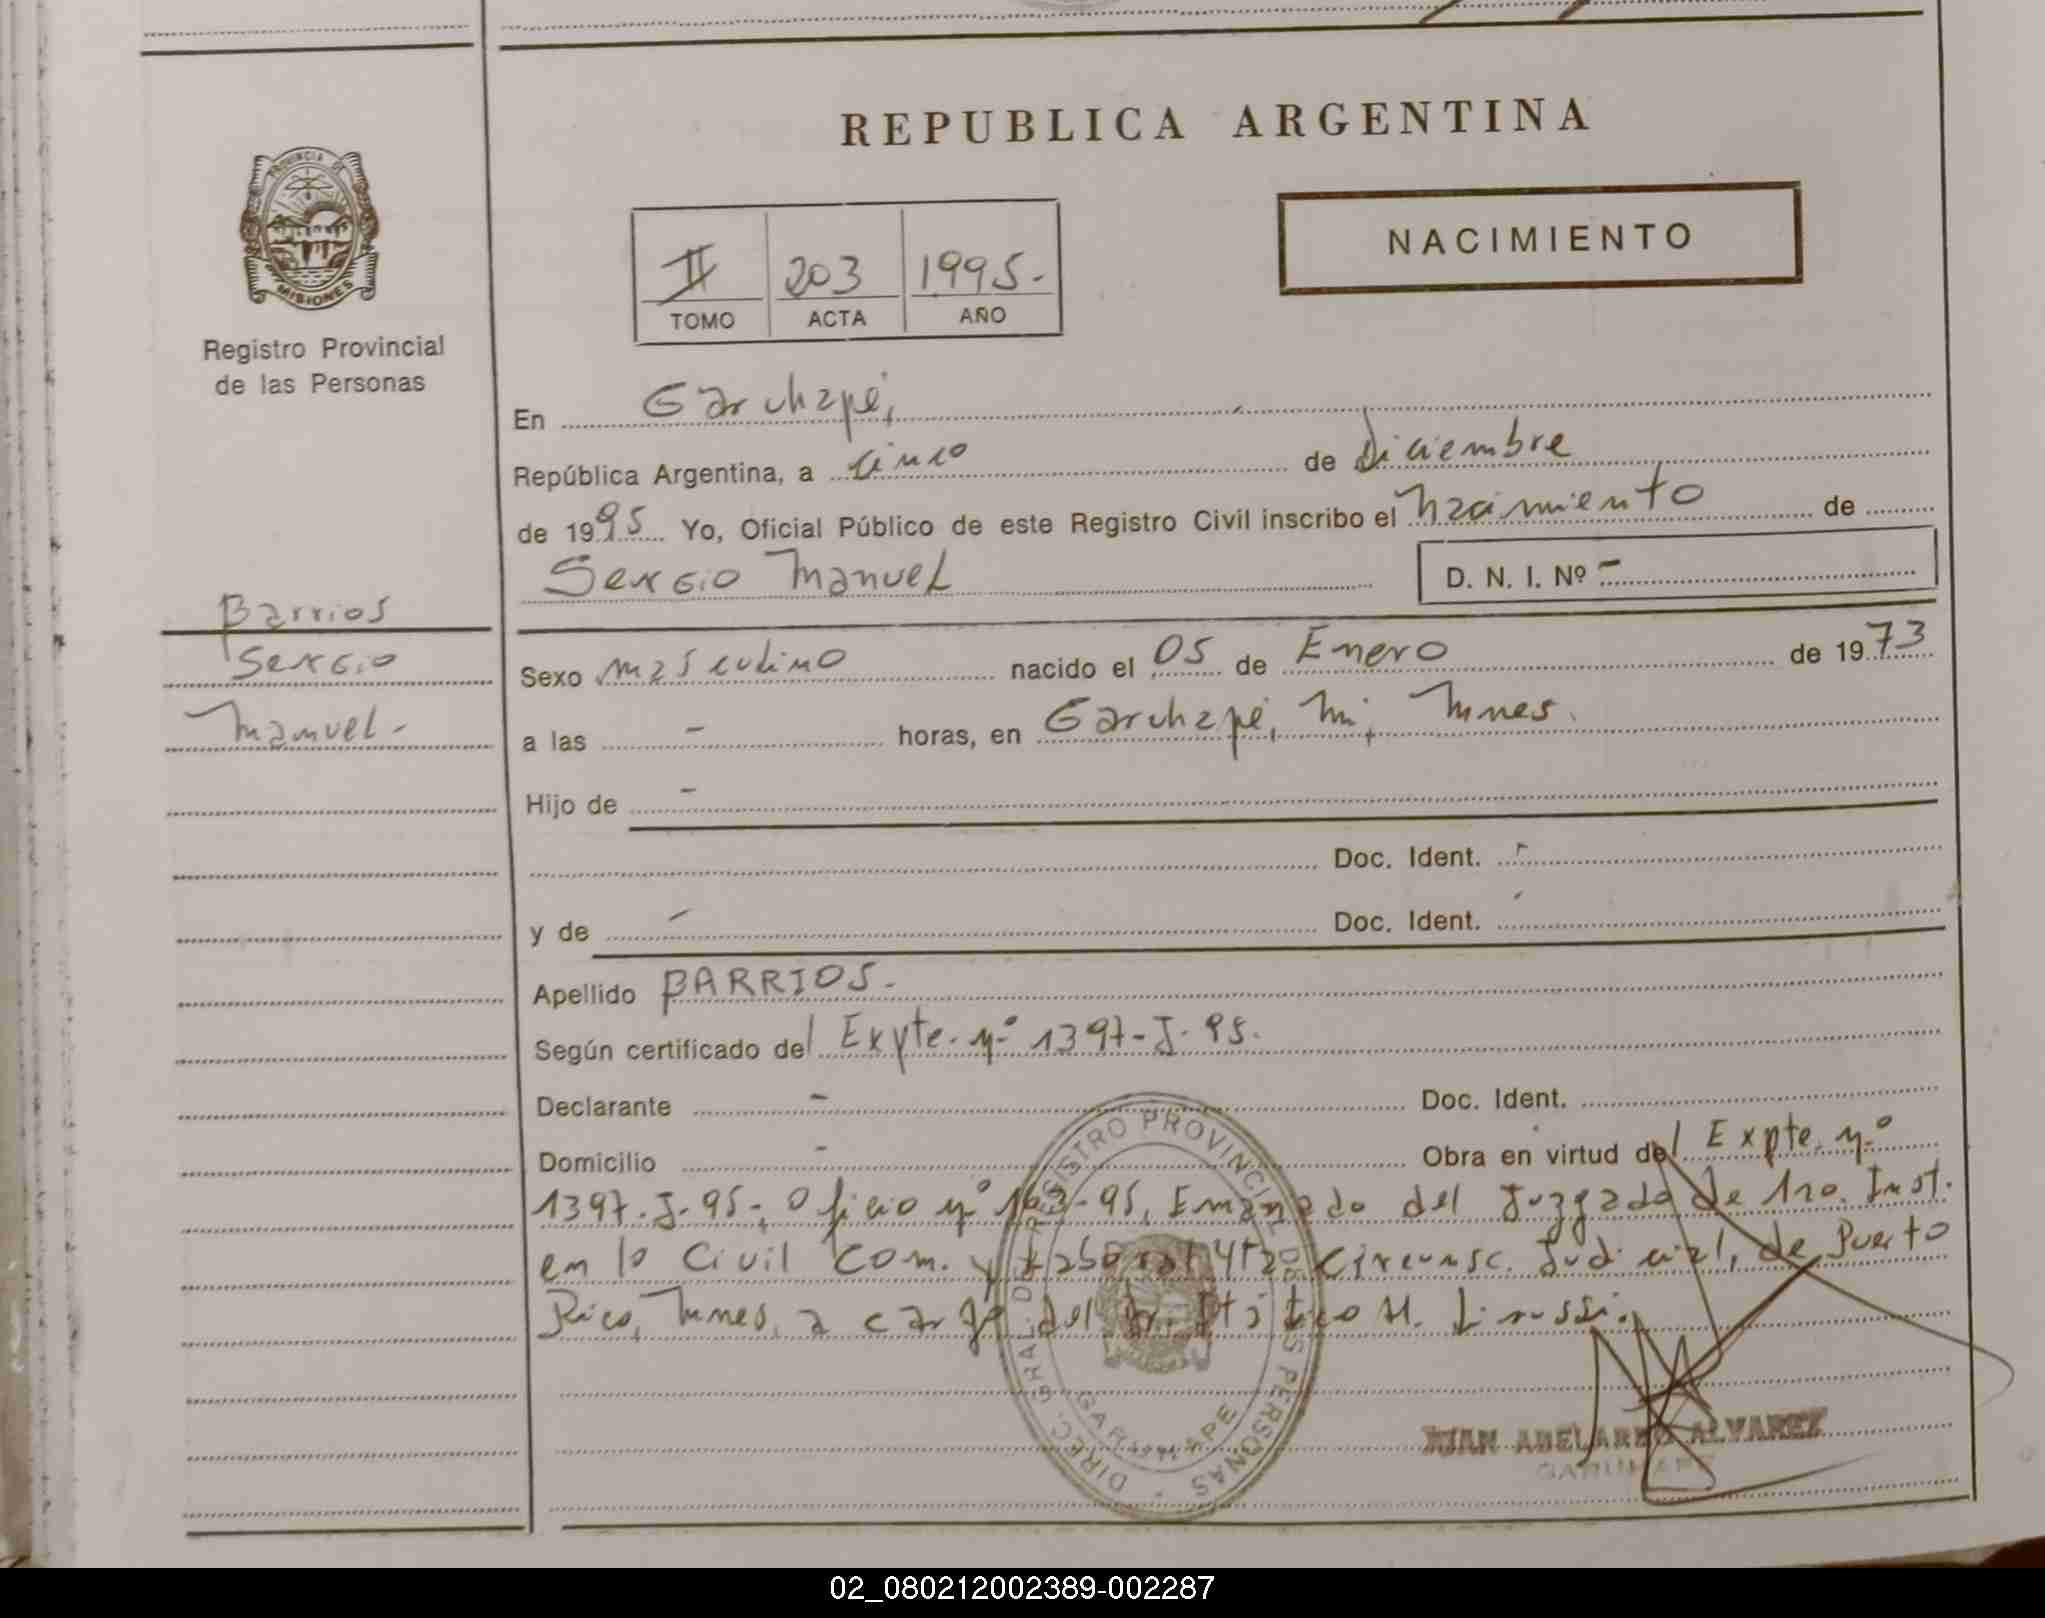 REPUBLICA ARGENTINA
PROVINCIA DE MISIONES
Registro Provincial
de las Personas
NACIMIENTO
II 203 1995.-
TOMO ACTA AÑO
En Garuhapé,
República Argentina, a cinco de Diciembre
de 1995 Yo, Oficial Público de este Registro Civil inscribo el nacimiento de
Sergio Manuel D. N. I. Nº -
Barrios
Sergio
Manuel.-
Sexo masculino nacido el 05 de Enero de 1973
a las - horas, en Garuhapé, Mi, Mnes.
Hijo de -
Doc. Ident. -
y de - Doc. Ident.
Apellido BARRIOS.-
Según certificado del Expte. nº 1397-J-95.
Declarante - Doc. Ident.
Domicilio - Obra en virtud del Expte. nº
1397-J-95-, Oficio nº -95, Emanado del Juzgado de 1ro. Inst.
en lo Civil Com. y Laboral 4ta Circunsc. Judicial, de Puerto
Rico, Mnes, a cargo del Dr. H. Linussi.
DIREC. GRAL. DEL REGISTRO PROVINCIAL DE LAS PERSONAS
GARUHAPE
JUAN ABELARDO ALVAREZ
GARUHAPE
02_080212002389-002287